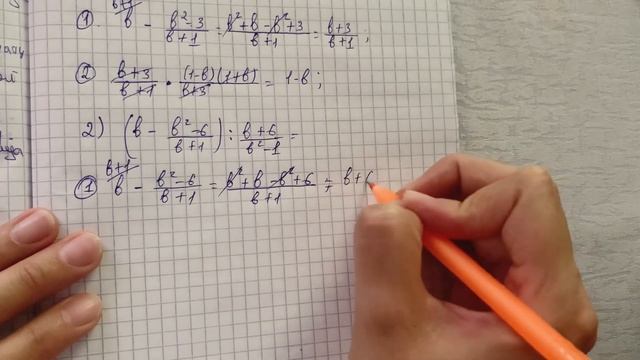 ① b+1/ b - (b²-3)/(b+1) = (b²+b-b²+3)/(b+1) = (b+3)/(b+1);
② (b+3)/(b+1) · (1-b)(1+b)/(b+3) = 1-b;
2) (b - (b²-6)/(b+1)) : (b+6)/(b²-1) =
① b+1/ b - (b²-6)/(b+1) = (b²+b-b²+6)/(b+1) = b+6